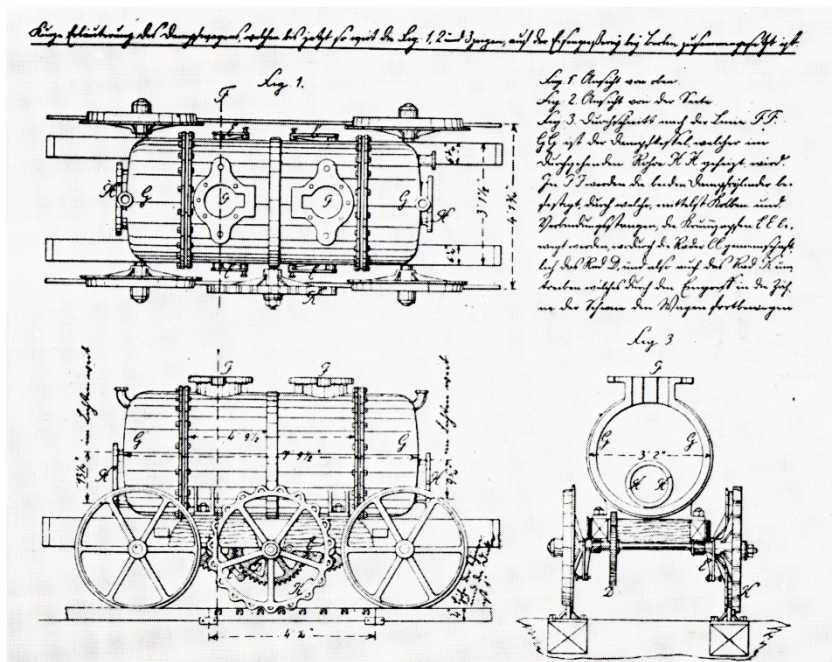 Kurze Erläuterung des Dampfwagens, welcher bis jetzt so weit die Fig. 1, 2 und 3 zeigen, auf der Eisengießerei bey Berlin zusammengesetzt ist.
Fig. 1.
Fig. 1 Ansicht von oben.
Fig. 2. Ansicht von der Seite
Fig. 3. Durchschnitt nach der Linie F.F.
GG ist der Dampfkessel, welcher im
durchgehenden Rohre H.H. geheizt wird.
In F F werden die beiden Dampfzylinder be-
festigt, durch welche, mittelst Kolben und
Verbindungsstangen, die Krummzapfen EE be-
wegt werden, wodurch die Räder CC gemeinschaft-
lich das Rad D, und also auch das Rad K um
treiben welches durch den Eingriff in die Zäh-
ne der Schiene den Wagen fortbewegen
F
H G G
K
Fig 3
F F
F
G G
4' 9½"
7' 9½"
G 3' 2" G
H H
H H
K
D K
4' 2"